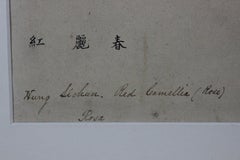 紅麗春
Hung Lichun. Red Camellia (Rose)
Rosa